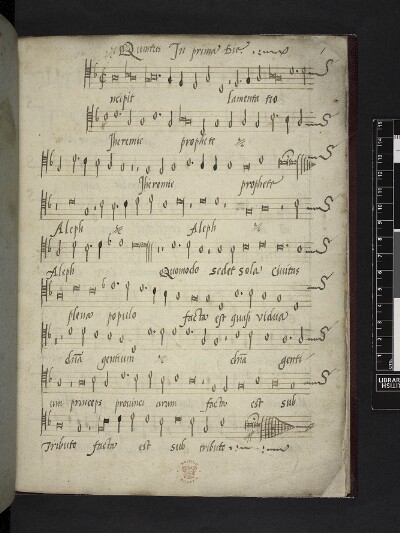 Quintus In prima Die.
ncipit lamenta tio
Jheremie prophete
Jheremie prophete
Aleph Aleph
Aleph Quomodo sedet sola Civitas
plena populo facta est quasi vidua
dña gentium dña genti
um princeps provinci arum facta est sub
Tributo facta est sub tributo